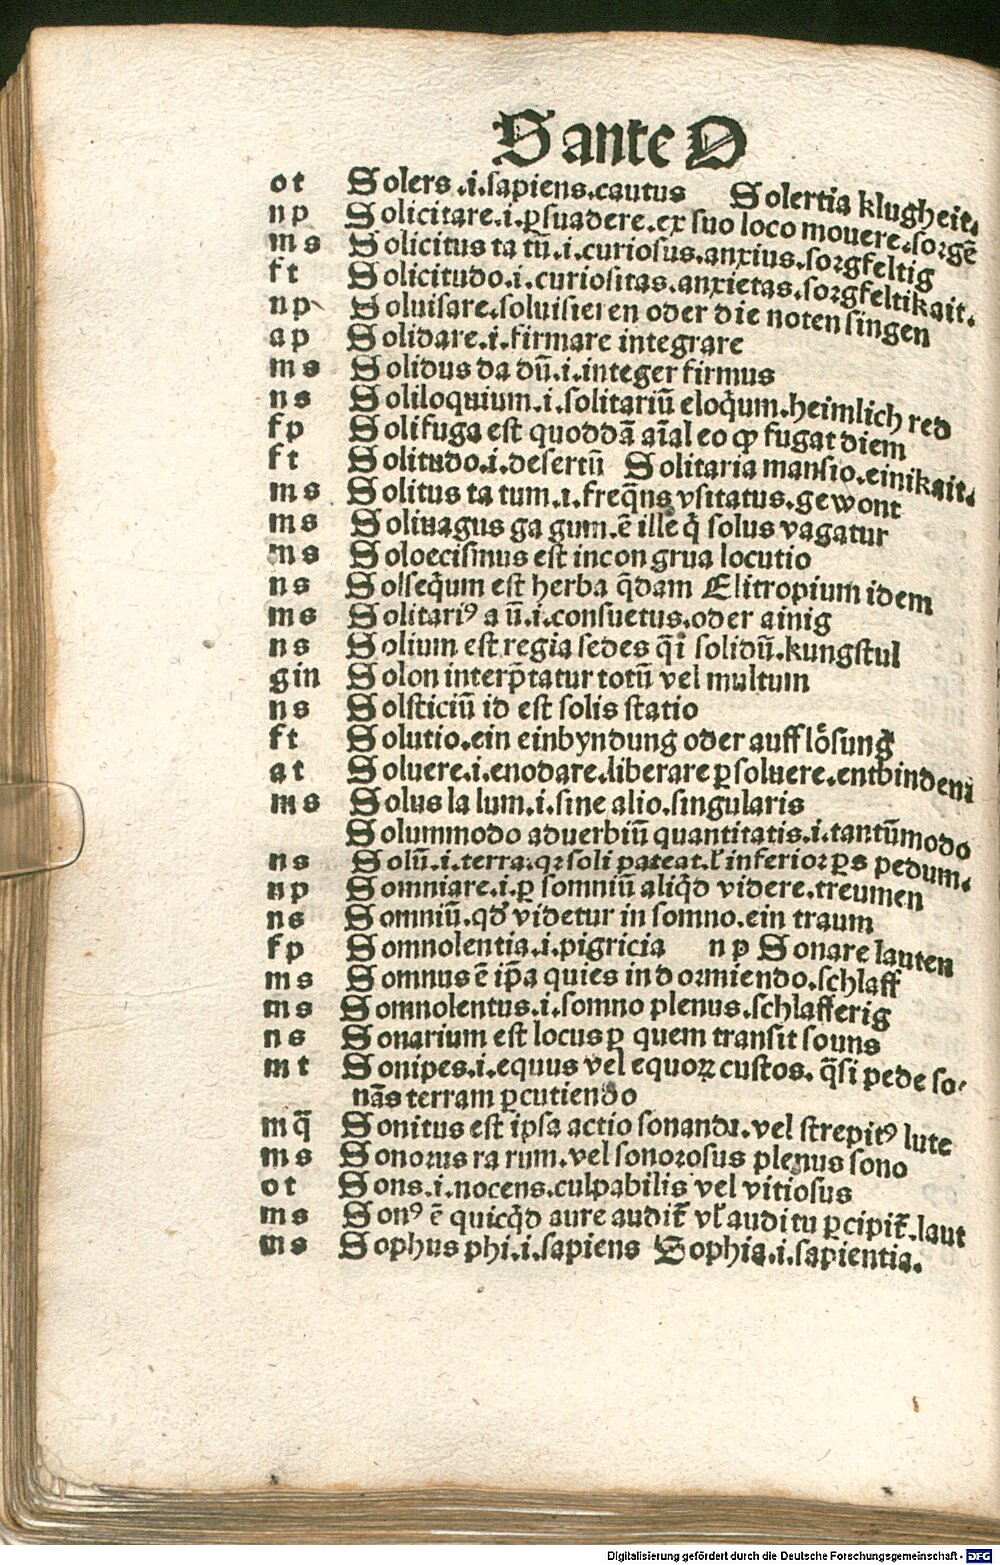 S ante O
ot Solers .i. sapiens.cautus Solertia klugheit.
np Solicitare.i.ꝑsuadere.ex suo loco mouere.sorgē
ms Solicitus ta tū.i.curiosus.anxius.sorgfeltig
ft Solicitudo.i.curiositas.anxietas.sorgfeltikait.
np Soluisare.soluisieren oder die noten singen
ap Solidare.i.firmare integrare
ms Solidus da dū.i.integer firmus
ns Soliloquium.i.solitariū eloq̄um.heimlich red
fp Solifuga est quoddā aīal eo ꝙ fugat diem
ft Solitudo.i.desertū Solitaria mansio.einikait.
ms Solitus ta tum.i.freq̄ns vsitatus.gewont
ms Soliuagus ga gum.ē ille q̄ solus vagatur
ms Soloecismus est incongrua locutio
ns Solseq̄um est herba q̄dam Elitropium idem
ms Solitariꝰ a ū.i.consuetus.oder ainig
ns Solium est regia sedes q̄i solidū.kungstul
gin Solon interp̄tatur totū vel multum
ns Solsticiū id est solis statio
ft Solutio.ein einbyndung oder aufflösung
at Soluere.i.enodare.liberare ꝑsoluere.entbinden
ms Solus la lum.i.sine alio.singularis
Solummodo aduerbiū quantitatis.i.tantūmodo
ns Solū.i.terra.qꝛ soli pateat.l' inferioꝛ ꝑs pedum.
np Somniare.i.ꝑ somniū aliq̄d videre.treumen
ns Somniū.qd' videtur in somno.ein traum
fp Somnolentia.i.pigricia np Sonare lauten
ms Somnus ē ip̄a quies in dormiendo.schlaff
ms Somnolentus.i.somno plenus.schlafferig
ns Sonarium est locus ꝑ quem transit souns
mt Sonipes.i.equus vel equoꝝ custos. q̄si pede so-
nās terram ꝑcutiendo
mq̄ Sonitus est ipsa actio sonandi.vel strepitꝰ lute
ms Sonorus ra rum.vel sonorosus plenus sono
ot Sons.i.nocens.culpabilis vel vitiosus
ms Sonꝰ ē quicq̄d aure audit̄ vl' auditu ꝑcipit̄.laut
ms Sophus phi.i.sapiens Sophia.i.sapientia.
Digitalisierung gefördert durch die Deutsche Forschungsgemeinschaft - DFG